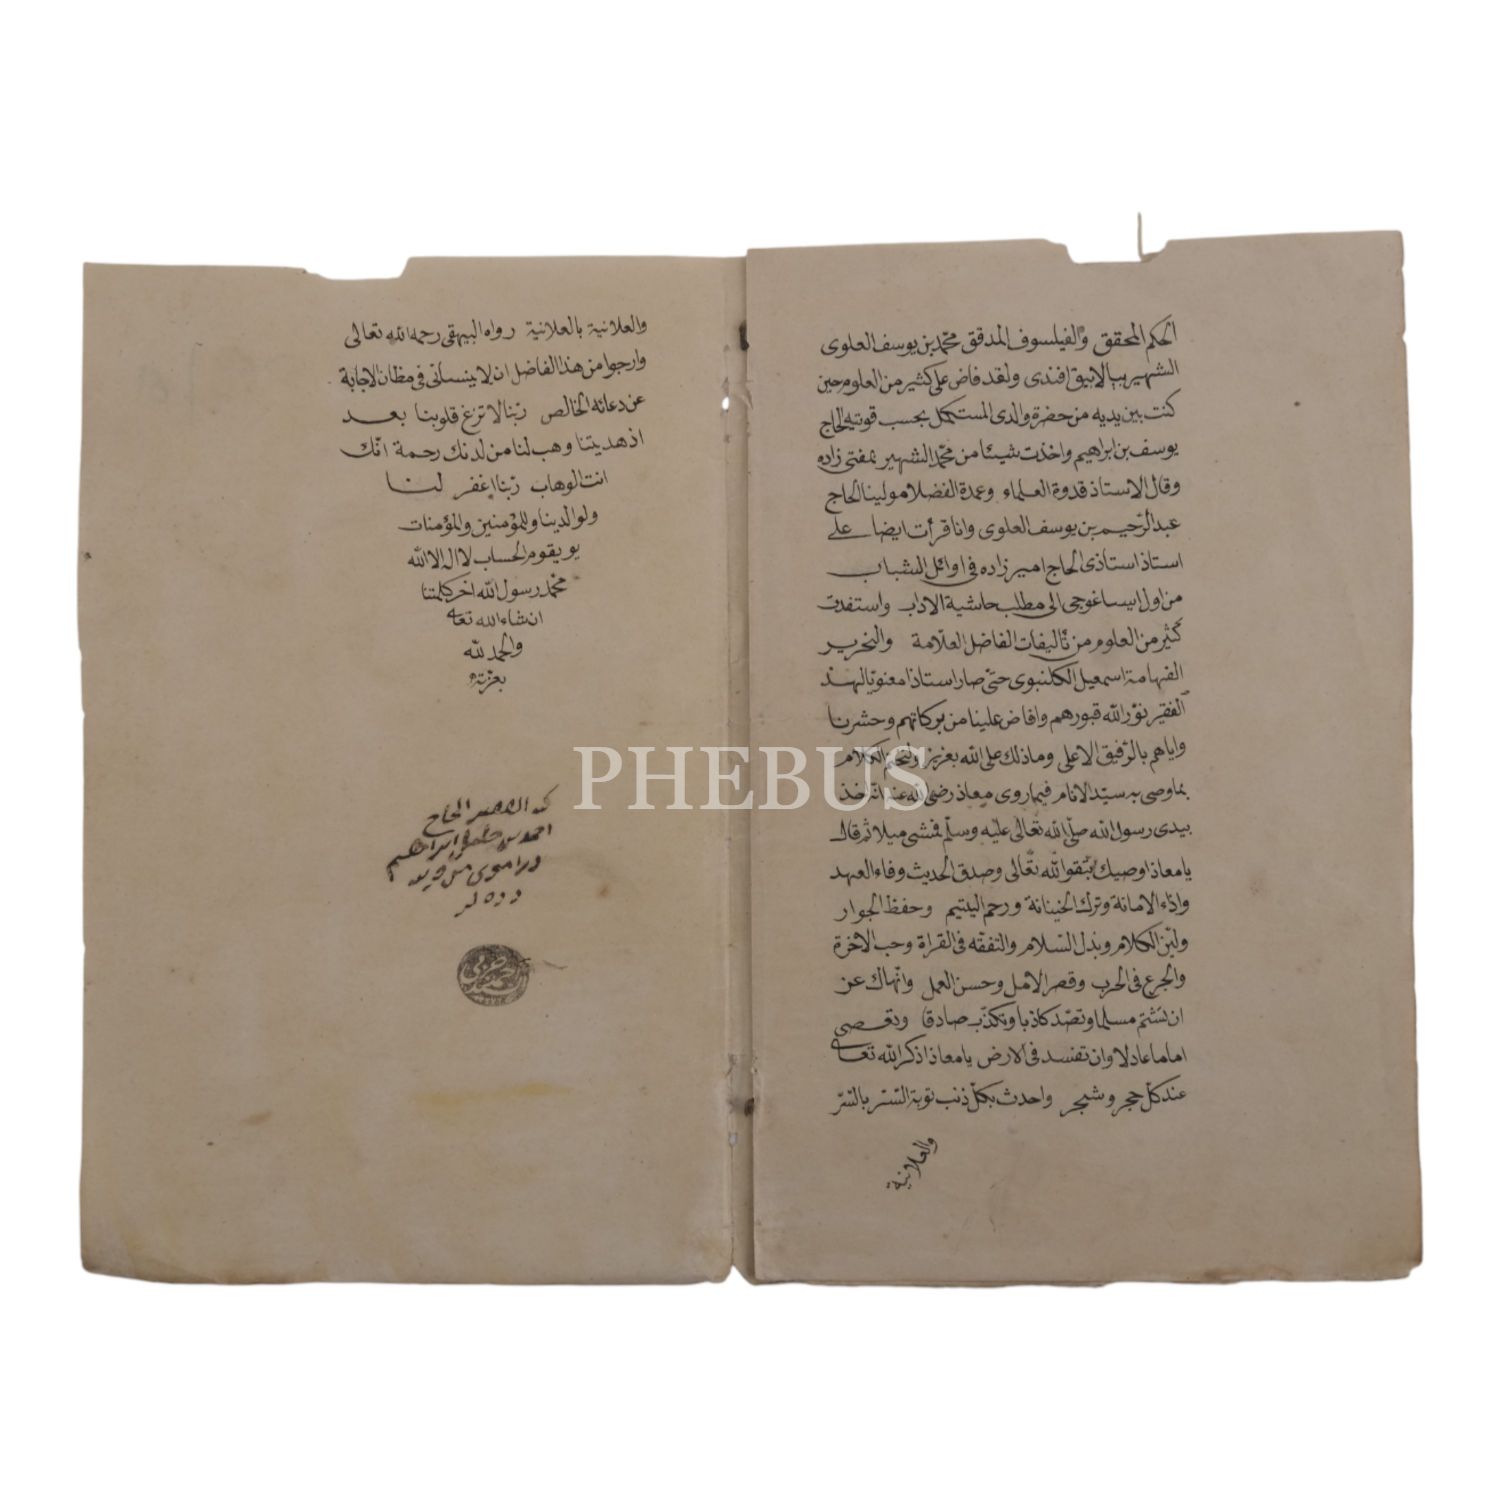 الحكم المحقق والفيلسوف المدقق محمد بن يوسف العلوى
الشهير بالابيق افندى ولقد فاض على كثير من العلوم حين
كنت بين يديه من حضرة والدى المستكمل بحسب قوتيه الحاج
يوسف بن ابراهيم واخذت شيئا من محمد الشهير بمفتى زاده
وقال الاستاذ قدوة العلماء وعمدة الفضلا مولينا الحاج
عبد الرحيم بن يوسف العلوى وانا قرأت ايضا على
استاذ استاذى الحاج امير زاده فى اوائل الشباب
من اول ايساغوجى الى مطلب حاشية الاداب واستفدت
كثير من العلوم من تأليفات الفاضل العلامة والنحرير
الفهامة اسمعيل الكلنبوى حتى صار استاذا معنويا لهذ
الفقير نور الله قبورهم وافاض علينا من بركاتهم وحشرنا
واياهم بالرفيق الاعلى وما ذلك على الله بعزيز ولنختم الكلام
بما وصى به سيد الانام فيما روى معاذ رضى الله عنه انه اخذ
بيدى رسول الله صلى الله تعالى عليه وسلم فمشى ميلا ثم قال
يا معاذ اوصيك بتقوا لله تعالى وصدق الحديث وفاء العهد
واداء الامانة وترك الخيانة ورحم اليتيم وحفظ الجوار
ولين الكلام وبذل السلام والتفقه فى القراة وحب الاخرة
والجرع فى الحرب وقصر الامل وحسن العمل وانهاك عن
ان تشتم مسلما وتصد كاذبا وتكذب صادقا وتعصى
اماما عادلا وان تفسد فى الارض يا معاذ اذكر الله تعالى
عند كل حجر وشجر واحدث بكل ذنب توبة الستر بالسر
والعلانية
والعلانية بالعلانية رواه البيهقى رحمه الله تعالى
وارجوا من هذا الفاضل ان لا ينسانى فى مظان الاجابة
عن دعائه الخالص ربنا لا تزغ قلوبنا بعد
اذ هديتنا وهب لنا من لدنك رحمة انك
انت الوهاب ربنا اغفر لنا
ولوالدينا وللمؤمنين والمؤمنات
يو يقوم الحساب لا اله الا الله
محمد رسول الله اخر كلمتنا
انشاء الله تعالى
والحمد لله
بعزته
الحاج
احمد بن ابراهيم
PHEBUS